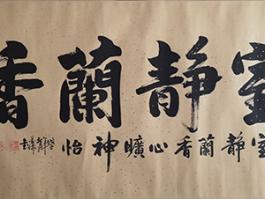 室靜蘭香
室靜蘭香心曠神怡